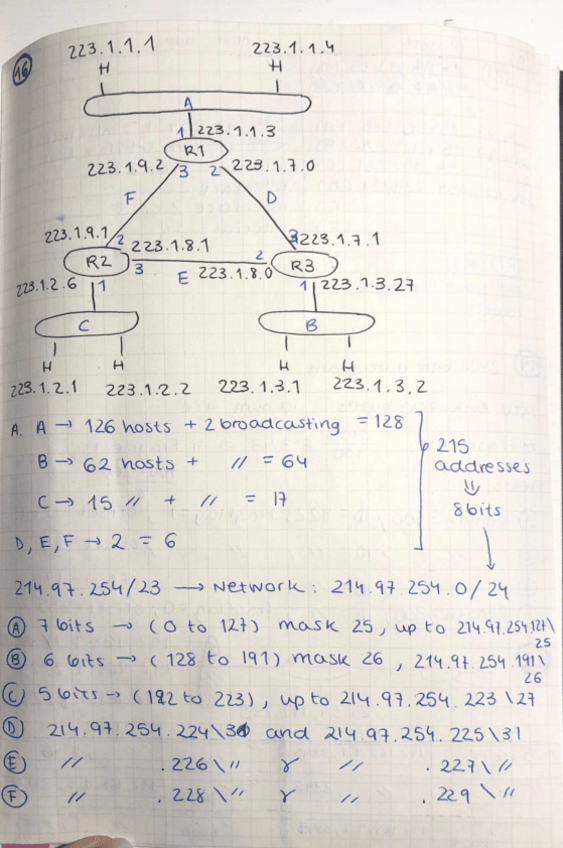 16
223.1.1.1 223.1.1.4
H H
A
1 223.1.1.3
R1
223.1.9.2 3 2 223.1.7.0
F D
223.1.9.1 2 223.1.8.1 2 3 223.1.7.1
R2 3 E 223.1.8.0 R3
223.1.2.6 1 1 223.1.3.27
C B
H H H H
223.1.2.1 223.1.2.2 223.1.3.1 223.1.3.2
A. A → 126 hosts + 2 broadcasting = 128
B → 62 hosts + // = 64
C → 15 // + // = 17
D, E, F → 2 = 6
215
addresses
⇓
8bits
214.97.254/23 → Network: 214.97.254.0/24
A 7 bits → (0 to 127) mask 25, up to 214.97.254.127\25
B 6 bits → (128 to 191) mask 26, 214.97.254.191\26
C 5 bits → (192 to 223), up to 214.97.254.223\27
D 214.97.254.224\31 and 214.97.254.225\31
E // .226\" γ // .227\//
F // .228\" γ // .229\"